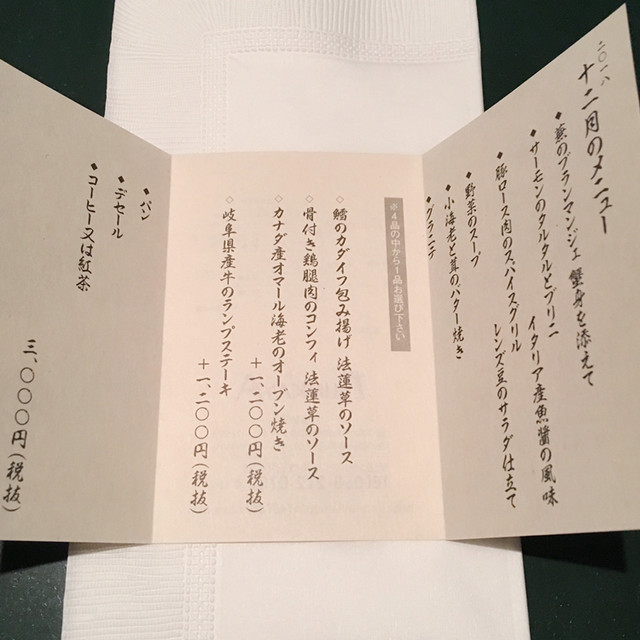 二〇一八
十二月のメニュー
◆蕪のブランマンジェ 蟹身を添えて
◆サーモンのタルタルとブリニ
イタリア産魚醤の風味
◆豚ロース肉のスパイスグリル
レンズ豆のサラダ仕立て
◆野菜のスープ
◆小海老と茸のバター焼き
◆グラニテ
※4品の中から1品お選び下さい
◇鱈のカダイフ包み揚げ 法蓮草のソース
◇骨付き鶏腿肉のコンフィ 法蓮草のソース
◇カナダ産オマール海老のオーブン焼き
+一、二〇〇円(税抜)
◇岐阜県産牛のランプステーキ
+一、二〇〇円(税抜)
◆パン
◆デセール
◆コーヒー又は紅茶
三、〇〇〇円(税抜